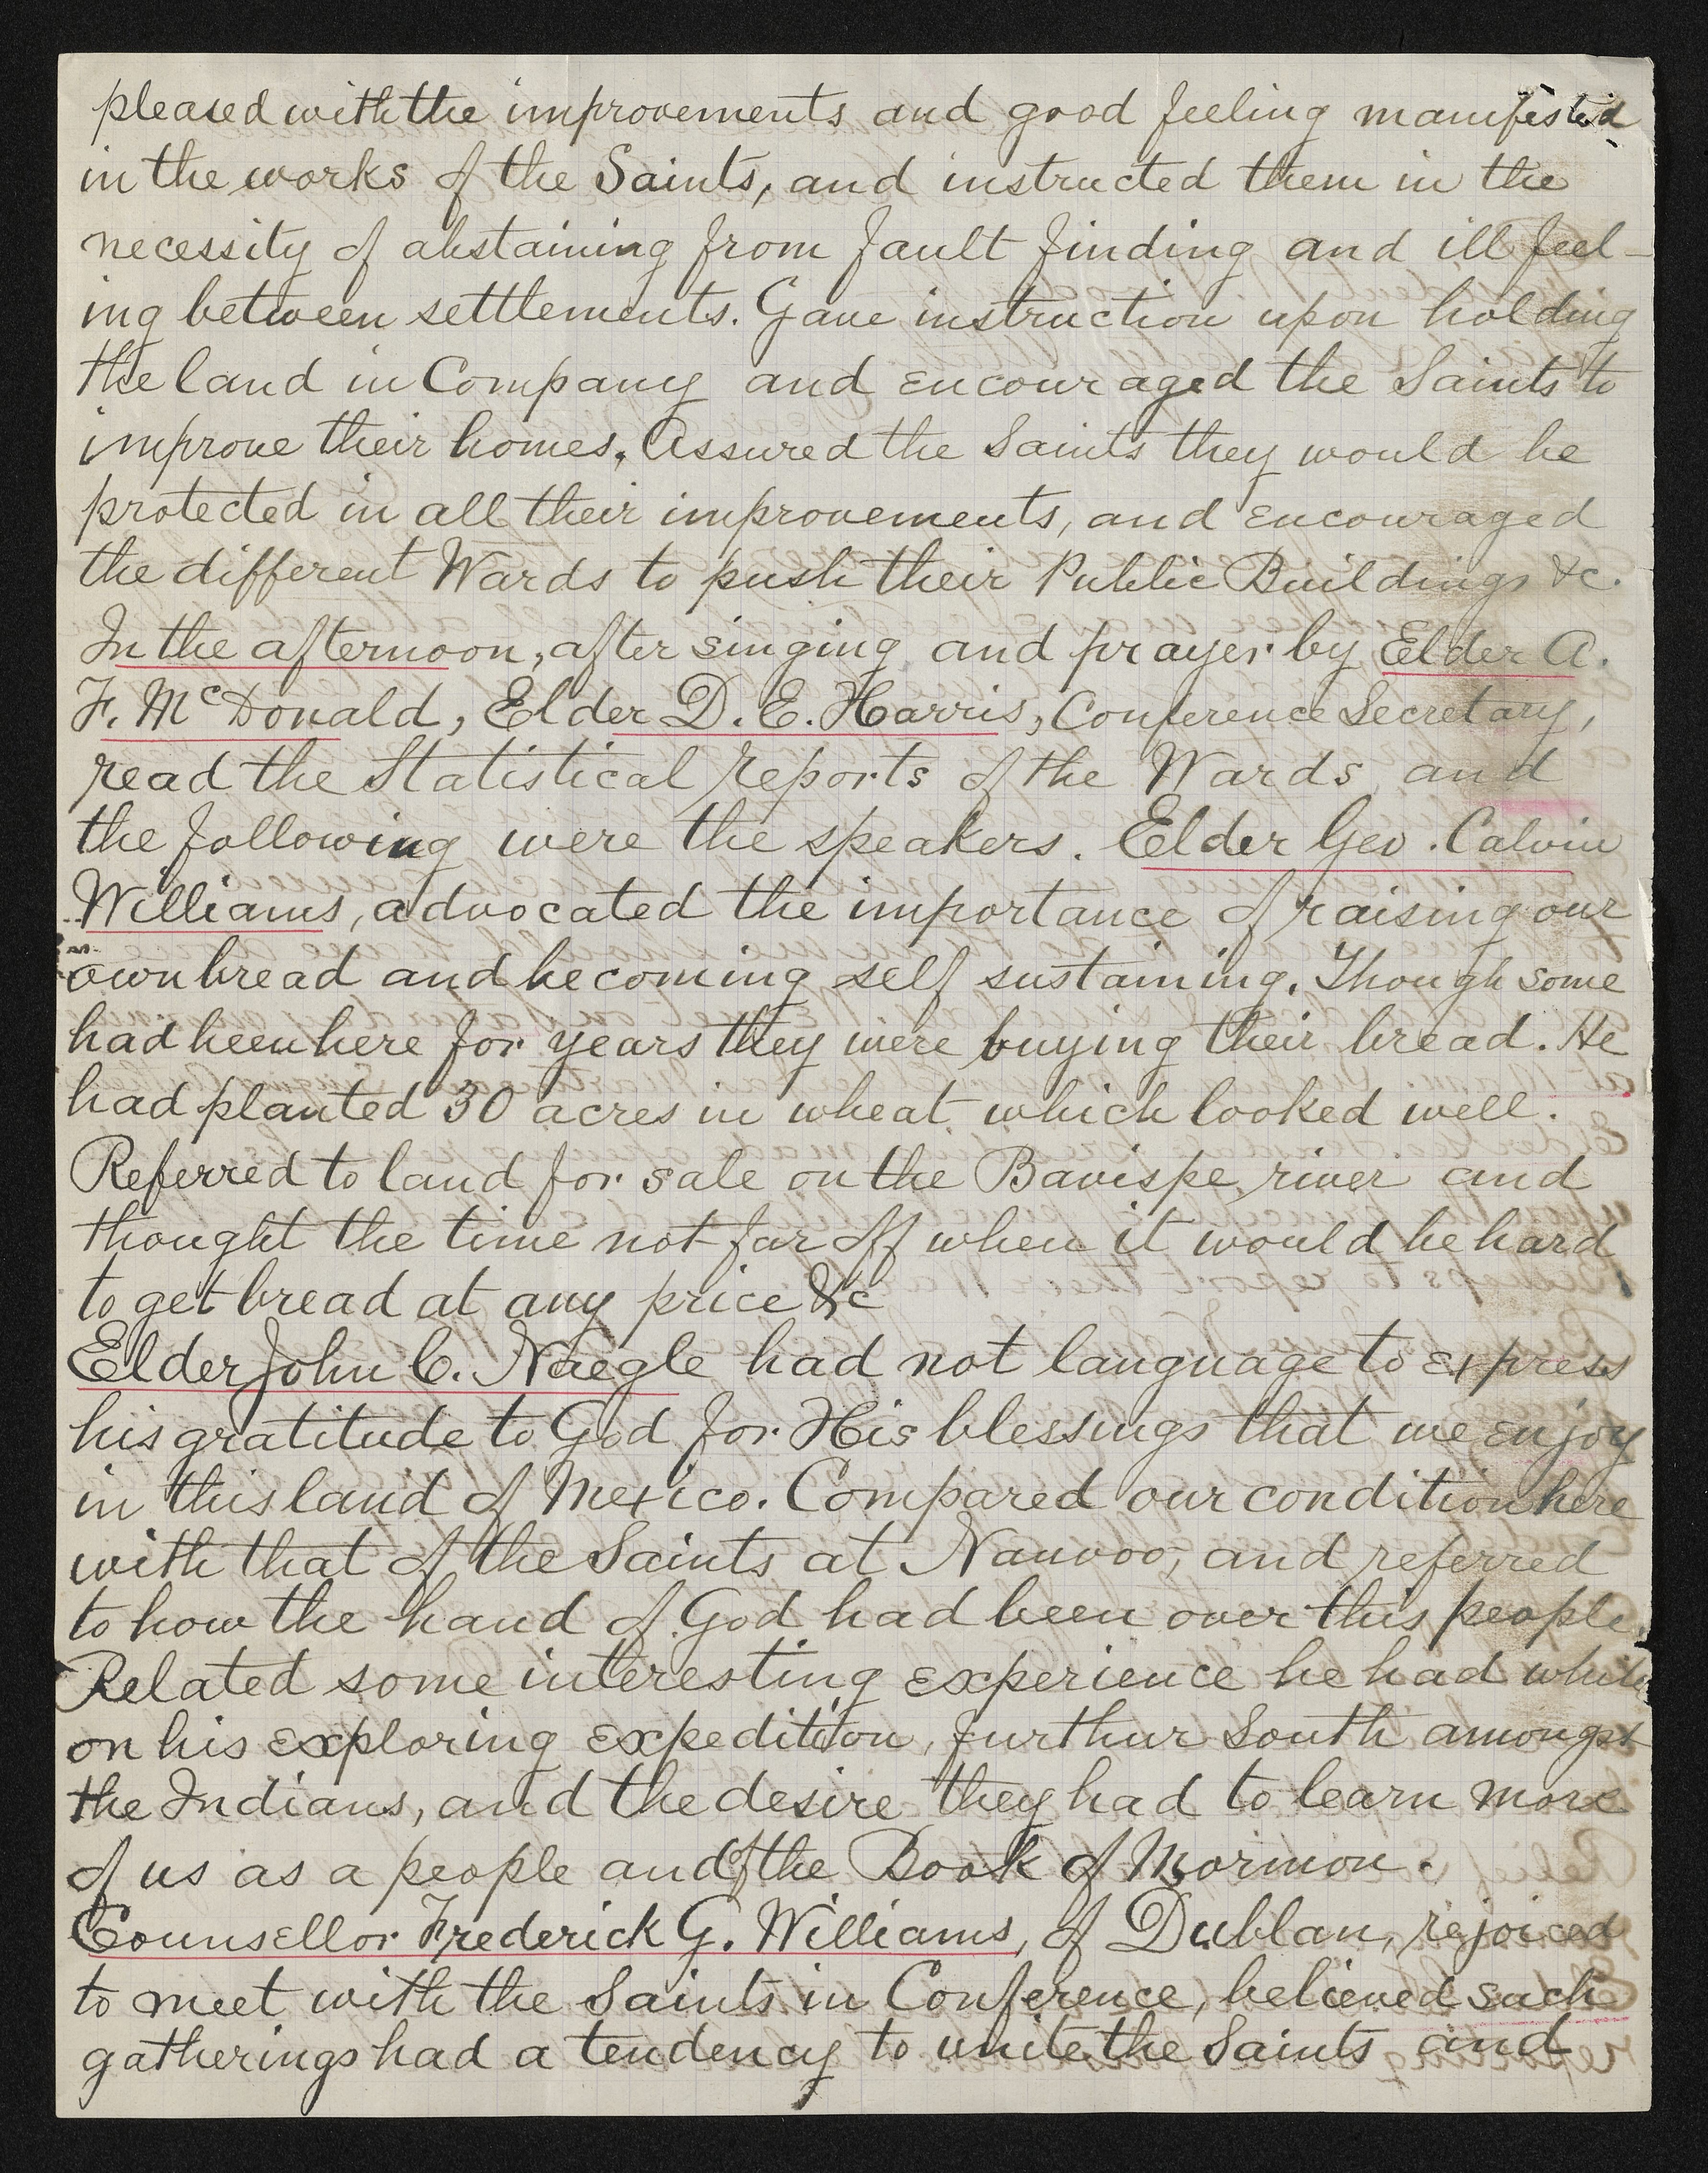 pleased with the improvements and good feeling manifested
in the works of the Saints, and instructed them in the
necessity of abstaining from fault finding and ill feel-
ing between settlements. Gave instruction upon holding
the land in Company and encouraged the Saints to
improve their homes. Assured the Saints they would be
protected in all their improvements, and encouraged
the different Wards to push their Public Buildings &c.
In the afternoon, after singing and prayer by Elder A.
F. McDonald, Elder D. E. Harris, Conference Secretary,
read the Statistical reports of the Wards and
the following were the speakers. Elder Geo. Calvin
Williams, advocated the importance of raising our
own bread and becoming self sustaining. Though some
had been here for years they were buying their bread. He
had planted 30 acres in wheat which looked well.
Referred to land for sale on the Bavispe river and
thought the time not far off when it would be hard
to get bread at any price &c
Elder John C. Naegle had not language to express
his gratitude to God for His blessings that we enjoy
in this land of Mexico. Compared our condition here
with that of the Saints at Nauvoo, and referred
to how the hand of God had been over this people.
Related some interesting experience he had while
on his exploring expedition, furthur South amongst
the Indians, and the desire they had to learn more
of us as a people and of the Book of Mormon.
Counsellor Frederick G. Williams, of Dublan, rejoiced
to meet with the Saints in Conference, believed such
gatherings had a tendency to unite the Saints and